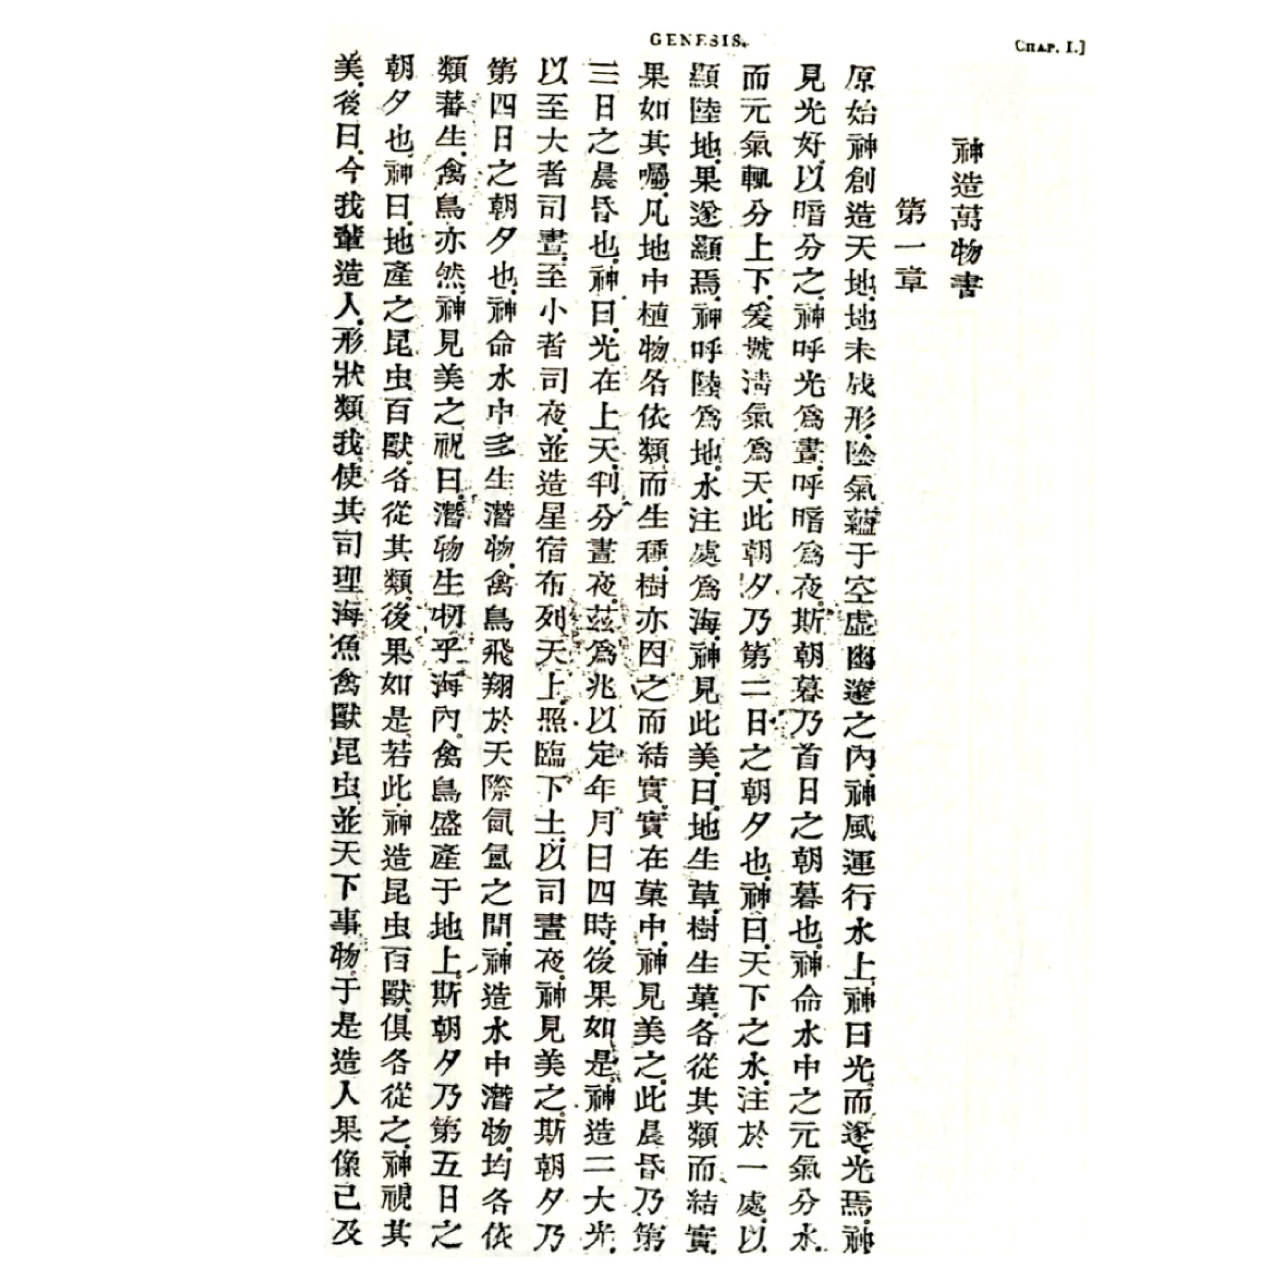 GENESIS.
CHAP. I.]
神造萬物書
第一章
原始神創造天地.地未成形.陰氣蘊于空虛幽邃之內.神風運行水上.神曰光.而遂光焉.神
見光好.以暗分之.神呼光爲晝.呼暗爲夜.斯朝暮乃首日之朝暮也.神命水中之元氣分水.
而元氣輒分上下.爰號淸氣爲天.此朝夕乃第二日之朝夕也.神曰.天下之水.注於一處.以
顯陸地.果遂顯焉.神呼陸爲地.水注處爲海.神見此美.曰.地生草.樹生菓.各從其類而結實.
果如其囑.凡地中植物各依類而生種.樹亦因之而結實.實在菓中.神見美之.此晨昏乃第
三日之晨昏也.神曰.光在上天.判分晝夜.茲爲兆以定年月日四時.後果如是.神造二大光.
以至大者司晝.至小者司夜.並造星宿布列天上.照臨下土.以司晝夜.神見美之.斯朝夕乃
第四日之朝夕也.神命水中多生潛物.禽鳥飛翔於天際氤氳之間.神造水中潛物.均各依
類蕃生.禽鳥亦然.神見美之.祝曰.潛物生牣乎海內.禽鳥盛產于地上.斯朝夕乃第五日之
朝夕也.神曰.地產之昆虫百獸.各從其類.後果如是.若此.神造昆虫百獸.俱各從之.神視其
美.後曰.今我輩造人.形狀類我.使其司理海魚禽獸昆虫.並天下事物.于是造人果像己.及